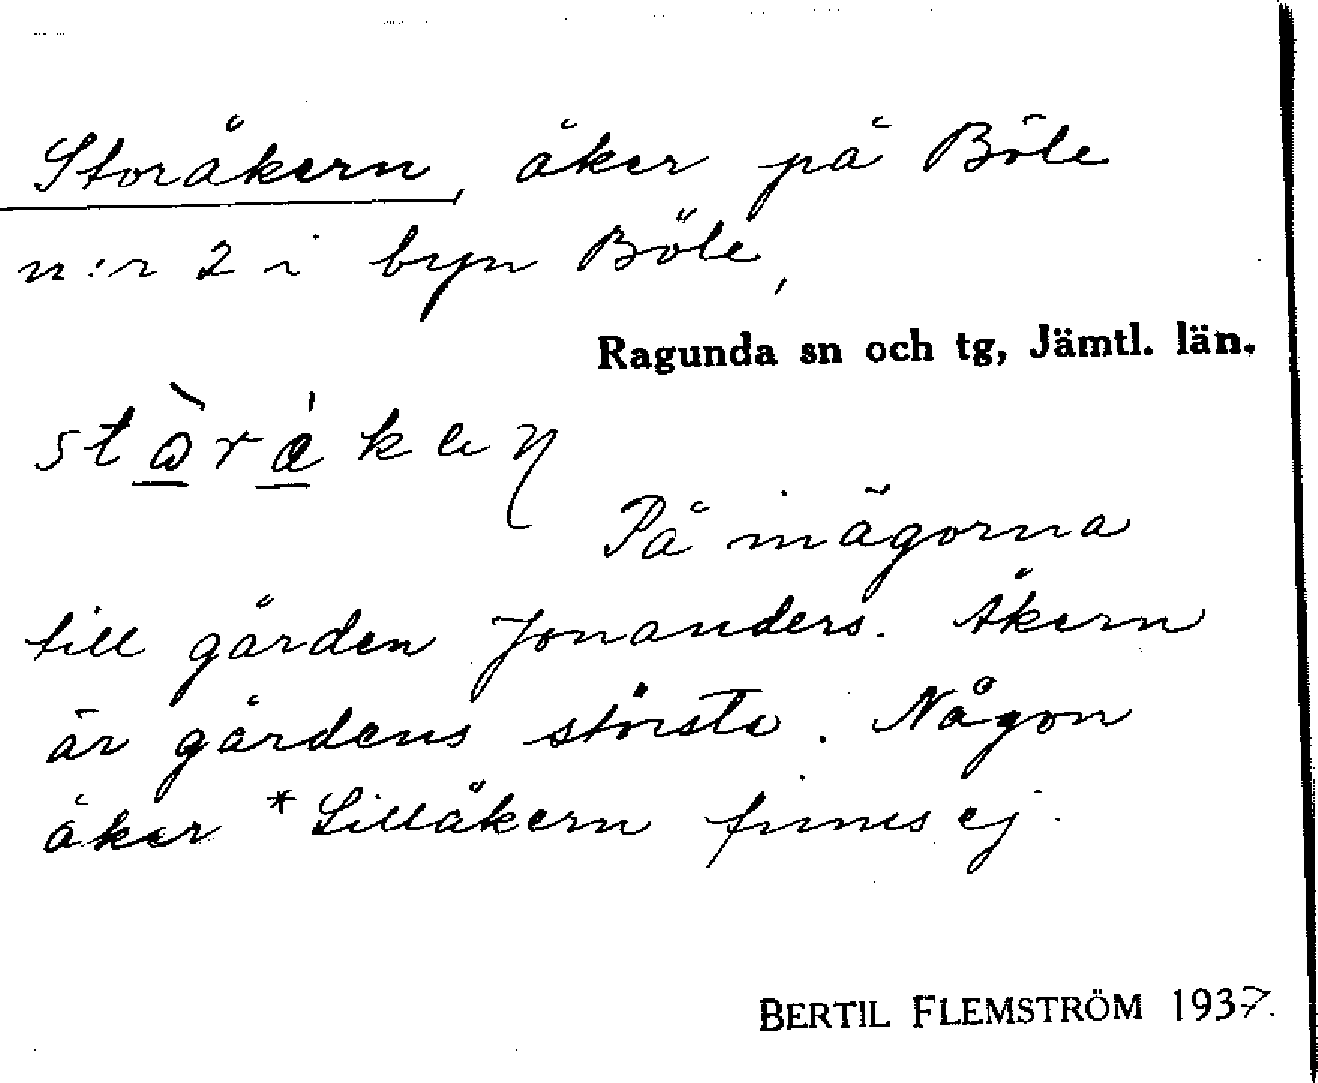 Storåkern, åker på Böle
n:r 2 i byn Böle,
Ragunda sn och tg, Jämtl. län.
På inägorna
till gården Jonanders. Åkern
är gårdens största. Någon
åker *Lillåkern finnes ej.
BERTIL FLEMSTRÖM 1937.